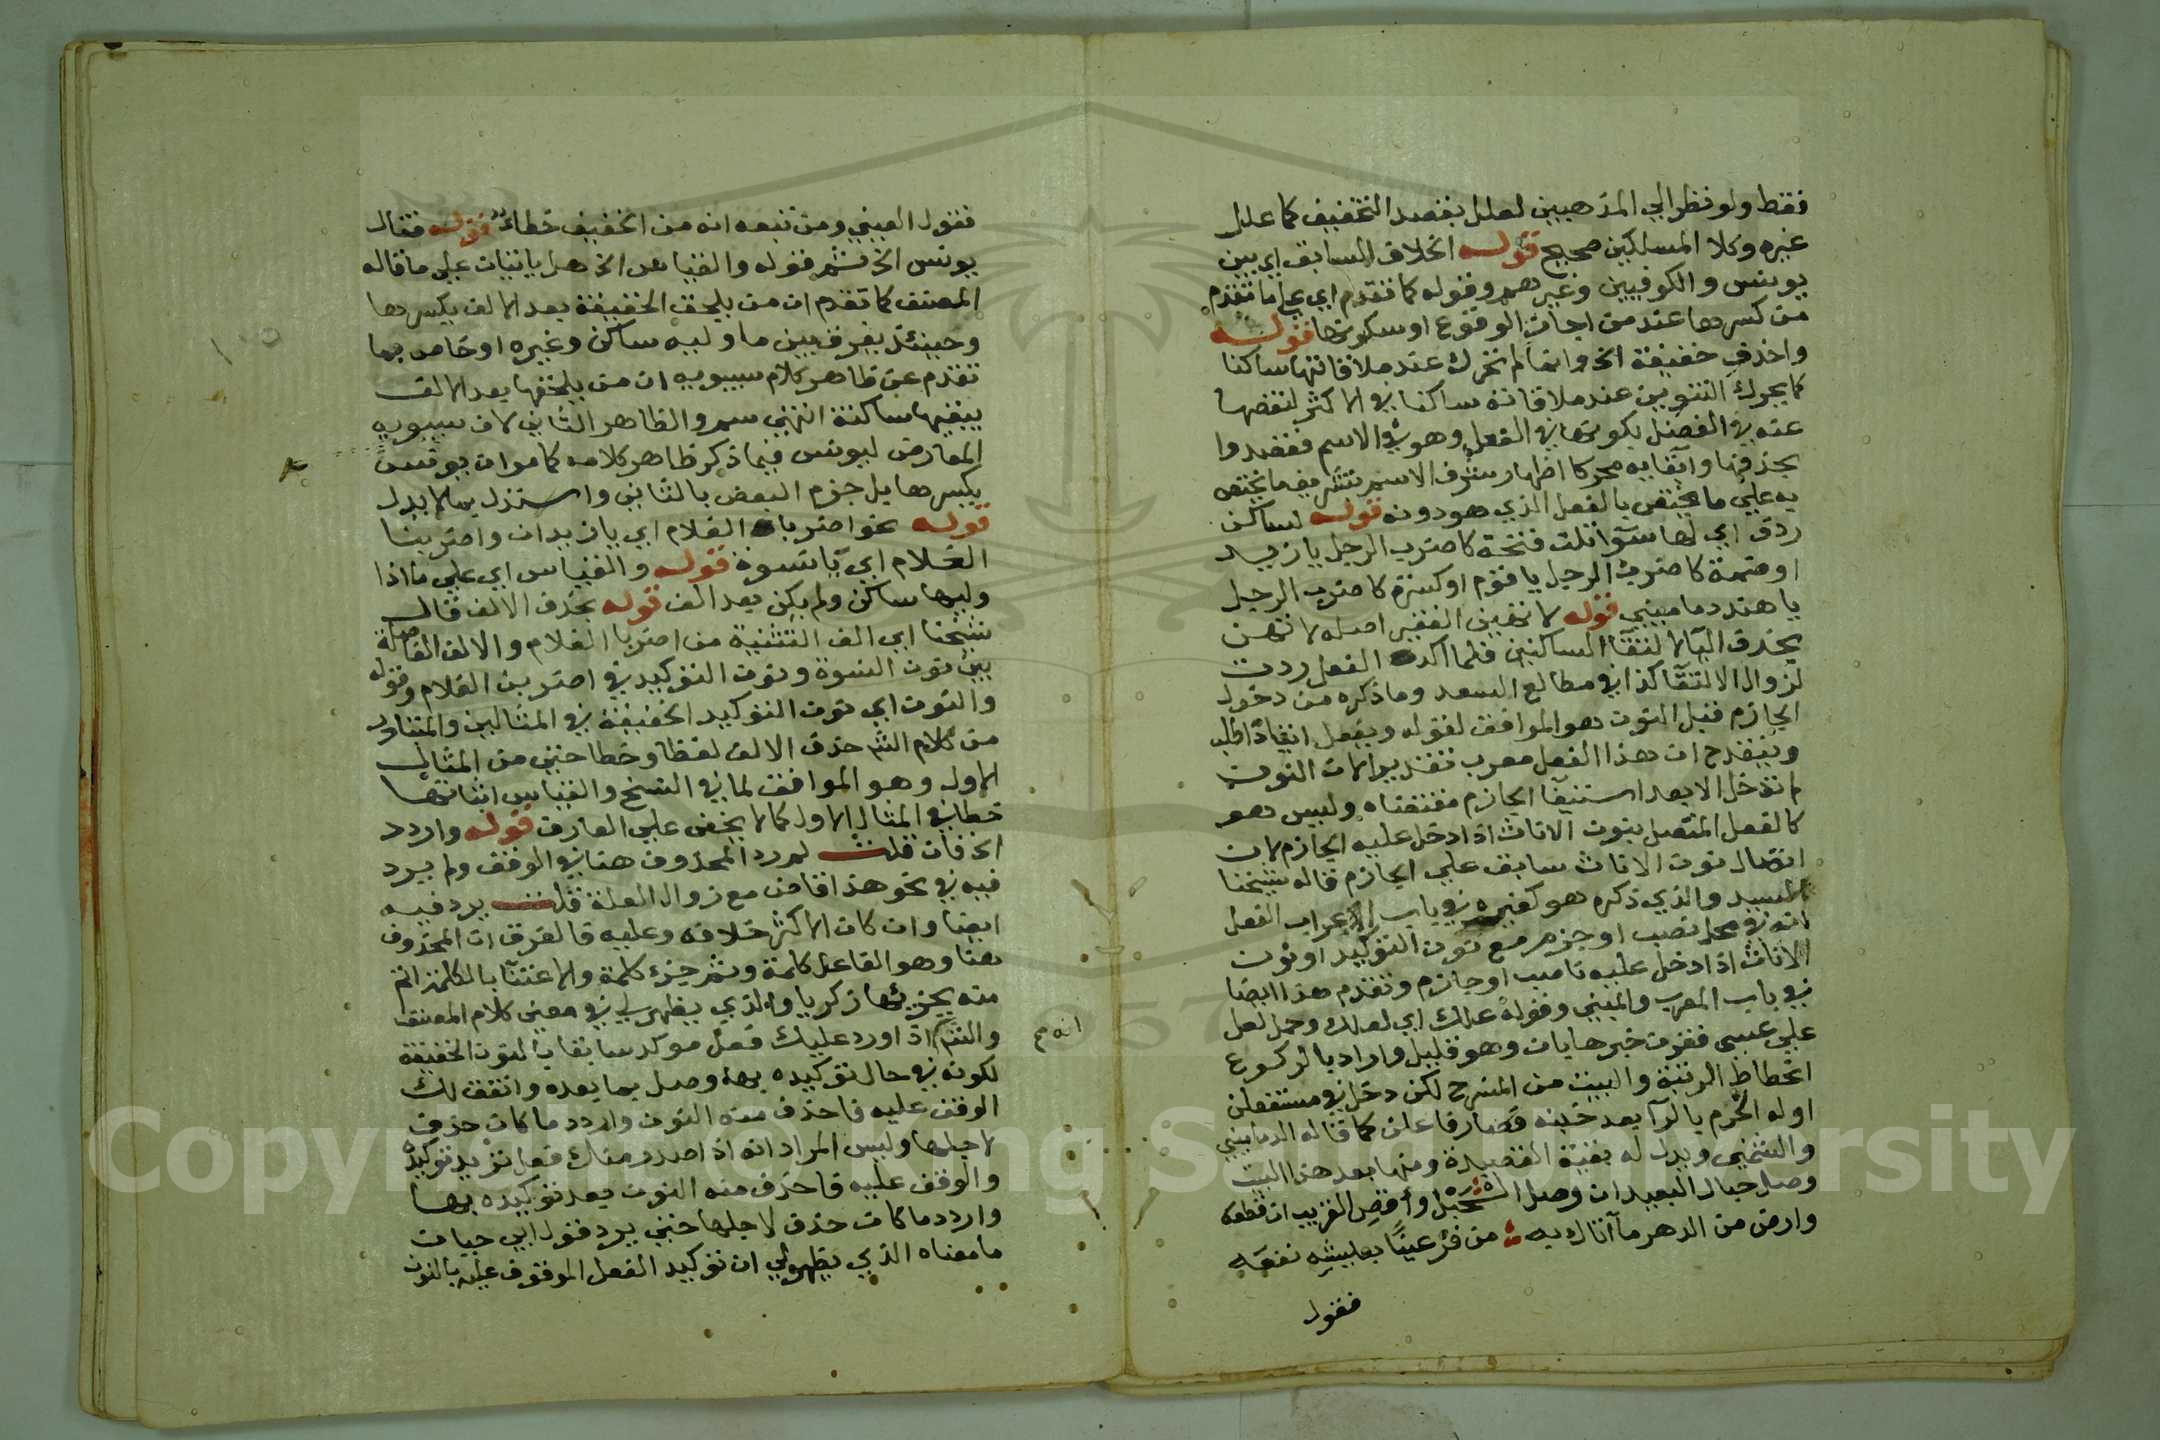 فقط ولو نظر الي المذهبين لعلل بقصد التخفيف كما علل
غيره وكلا المسلكين صحيح قوله الخلاف السابق اي بين
يونس والكوفيين وغيرهم وقوله كما تقدم اي علي ما تقدم
من كسرها عند من اجاز الوقوع او سكونها قوله
واحذف خفيفة الخ وانما لم تحرك عند ملاقاتها ساكنا
كما يحرك التنوين عند ملاقاته ساكنا في الاكثر لنقصها
عنه في الفضل بكونها في الفعل وهو في الاسم فقصدوا
بحذفها وابقايه محركا اظهار شرف الاسم بتشريف ما يختص
به علي ما يختص بالفعل الذي هو دونه قوله لساكن
ردف اي لها سوآ تلت فتحة كاضرب الرجل يا زيد
او ضمة كاضرب الرجل يا قوم او كسرة كاضرب الرجل
يا هند دماميني قوله لا تهين الفقير اصله لا تهن
بحذف اليآ لالتقآ الساكنين فلما اكد الفعل ردت
لزوال الالتقآ كذا في مطالع السعد وما ذكره من دخول
الجازم قبل النون هو الموافق لقوله ويفعل اتيا ذا طلب
ويتقدح ان هذا الفعل معرب تقديرا لان النون
لم تدخل الا بعد استيفا الجازم مقتضاه وليس هو
كالفعل المتصل بنون الاناث اذا دخل عليه الجازم لان
اتصال نون الاناث سابق علي الجازم قاله شيخنا
السيد والذي ذكره هو كغيره في باب اعراب الفعل
انه في محل نصب او جزم مع نون التوكيد او نون
الاناث اذا دخل عليه ناصب او جازم وتقدم هذا ايضا
في باب المعرب والمبني وقوله علك اي لعلك وحمل لعل
علي عسي فقرن خبرها بان وهو قليل واراد بالركوع
انحطاط الرتبة والبيت من المنسرح لكن دخل في مستفعلن
اوله الخرم بالرآ بعد خبنه فصار فاعلن كما قاله الدماميني
والشمني ويدل له بقية القصيدة ومنها بعد هذا البيت
وصل حبال البعيد ان وصل الحبل وأقص القريب ان قطعه
وارض من الدهر ما آتاك به من قر عينًا بعيشه نفعه
فقول
فقول العيني ومن تبعه انه من الخفيف خطاء قوله فقال
يونس الخ فثم قوله والقياس الخ هل ياتيان علي ما قاله
المصنف كما تقدم ان من يلحق الخفيفة بعد الالف يكسرها
وحينئذ يفرق بين ما وليه ساكن وغيره او خاص بما
تقدم عن ظاهر كلام سيبويه ان من يلحقها بعد الالف
يبقيها ساكنة انتهي سم والظاهر الثاني لان سيبويه
المعارض ليونس فيما ذكر ظاهر كلامه كما مر ان يونس
يكسرها بل جزم البعض بالثاني واستدل بما لا يدل
قوله نحو اضربا الغلام اي يا زيدان واضربنا
الغلام اي يا نسوة قوله والقياس اي علي ما اذا
وليها ساكن ولم يكن بعد الف قوله بحذف الالف قال
شيخنا اي الف التثنية من اضربا الغلام والالف الفاصلة
بين نون النسوة ونون التوكيد في اضربن الغلام وقوله
والنون اي نون التوكيد الخفيفة في المثالين والمتبادر
من كلام الشم حذف الالف لفظا وخطا حتي من المثال
الاول وهو الموافق لما في النسخ والقياس اثباتها
خطا في المثال الاول كما لا يخفي علي العارف قوله واردد
الخ فان قلت لم رد المحذوف هنا في الوقف ولم يرد
فيه في نحو هذا قاض مع زوال العلة قلت يرد فيه
ايضا وان كان الاكثر خلافه وعليه فالفرق ان المحذوف
هنا وهو الفاعل كلمة وثم جزء كلمة والاعتنآ بالكلمة اتم
منه بجزيها زكريا والذي يظهر لي في معني كلام المصنف
والشم انه اذا ورد عليك فعل موكد سابقا بالنون الخفيفة
لكونه في حال توكيده بها وصل بما بعده واتفق لك
الوقف عليه فاحذف منه النون واردد ما كان حذف
لاجلها وليس المراد انه اذا صدر منك فعل تريد توكيده
والوقف عليه فاحذف منه النون بعد توكيده بها
واردد ما كان حذف لاجلها حتي يرد قول ابي حيان
ما معناه الذي يظهر لي ان توكيد الفعل الموقوف عليه بالنون
انه صح
Copyright © King Saud University
1957